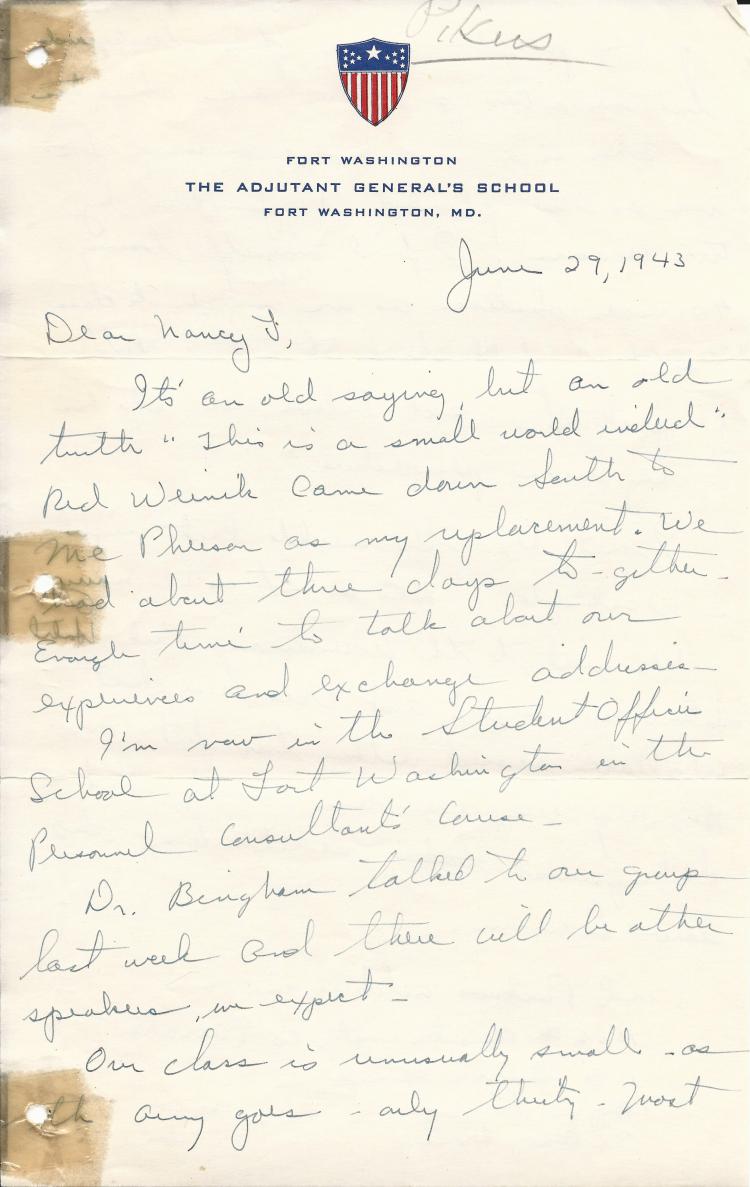 Pikus
FORT WASHINGTON
THE ADJUTANT GENERAL'S SCHOOL
FORT WASHINGTON, MD.
June 29, 1943
Dear Nancy T,
It's an old saying, but an old
truth "This is a small world indeed".
Red Weinik came down South to
Mc Pherson as my replacement. We
had about three days to-gether -
Enough time to talk about our
experiences and exchange addresses -
I'm now in the Student Officer
School at Fort Washington in the
Personnel Consultants' Course -
Dr. Bingham talked to our group
last week and there will be other
speakers, we expect -
Our class is unusually small - as
th army goes - only thirty - Most